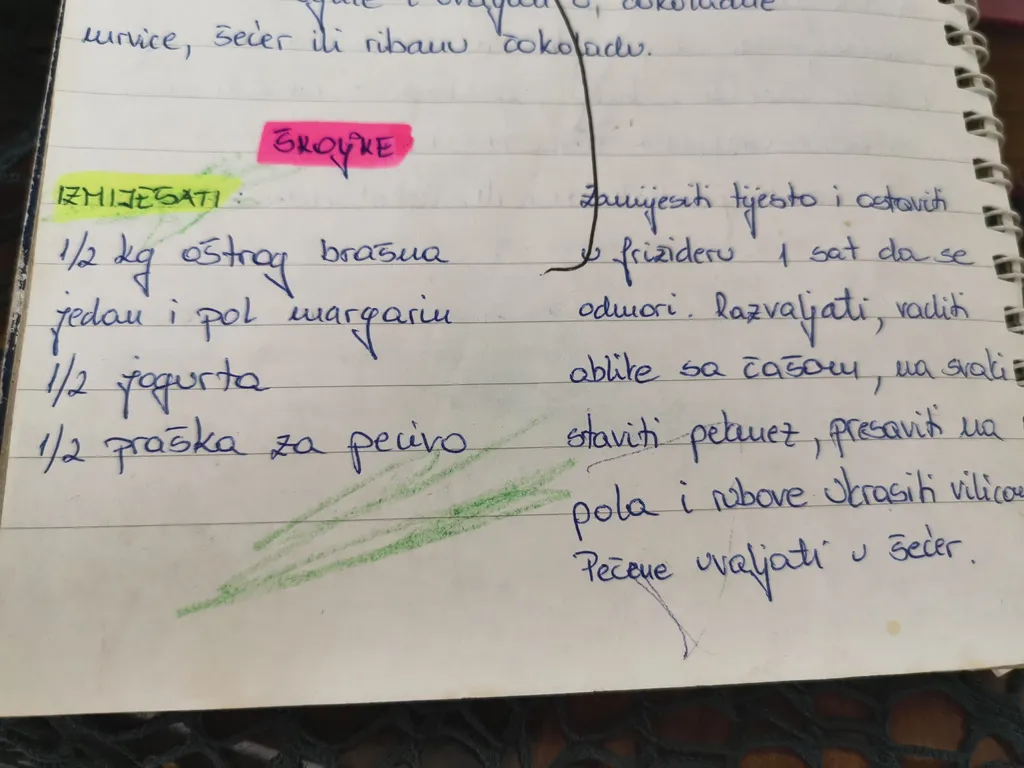 čokoladne
mrvice, šećer ili ribanu čokoladu.
ŠKOLJKE
IZMIJEŠATI:
1/2 kg oštrog brašna
jedan i pol margarin
1/2 jogurta
1/2 praška za pecivo
Zamijesiti tijesto i ostaviti
u frizideru 1 sat da se
odmori. Razvaljati, vaditi
oblike sa čašom, na svaki
staviti pekmez, presaviti na
pola i rubove ukrasiti vilicom
Pečene uvaljati u šećer.